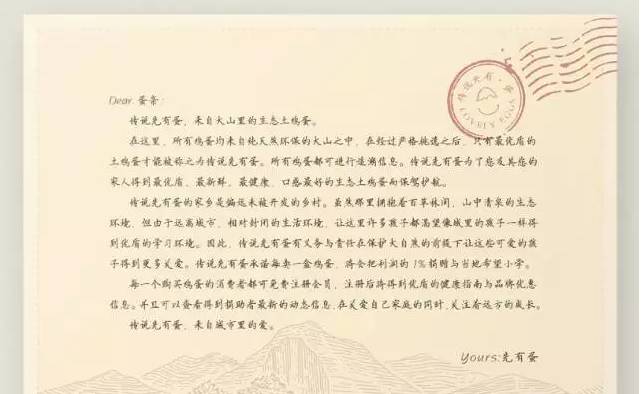 Dear. 蛋亲:
传说先有蛋，来自大山里的生态土鸡蛋。
在这里，所有鸡蛋均来自纯天然环保的大山之中，在经过严格挑选之后，只有最优质的
土鸡蛋才能被称之为传说先有蛋。所有鸡蛋都可进行追溯信息。传说先有蛋为了您及其您的
家人得到最优质、最新鲜、最健康、口感最好的生态土鸡蛋而保驾护航。
传说先有蛋的家乡是偏远未被开发的乡村。虽然那里拥抱着百草林间，山中清泉的生态
环境，但由于远离城市，相对封闭的生活环境，让这里许多孩子都渴望像城里的孩子一样得
到优质的学习环境。因此，传说先有蛋有义务与责任在保护大自然的前提下让这些可爱的孩
子得到更多关爱。传说先有蛋承诺每卖一盒鸡蛋，将会把利润的1%捐赠与当地希望小学。
每一个购买鸡蛋的消费者都可免费注册会员，注册后将得到优质的健康指南与品牌优惠
信息。并且可以查看得到捐助者最新的动态信息，在关爱自己家庭的同时，关注着远方的成长。
传说先有蛋，来自城市里的爱。
Yours:先有蛋
传说先有·蛋
LOVELY EGGS